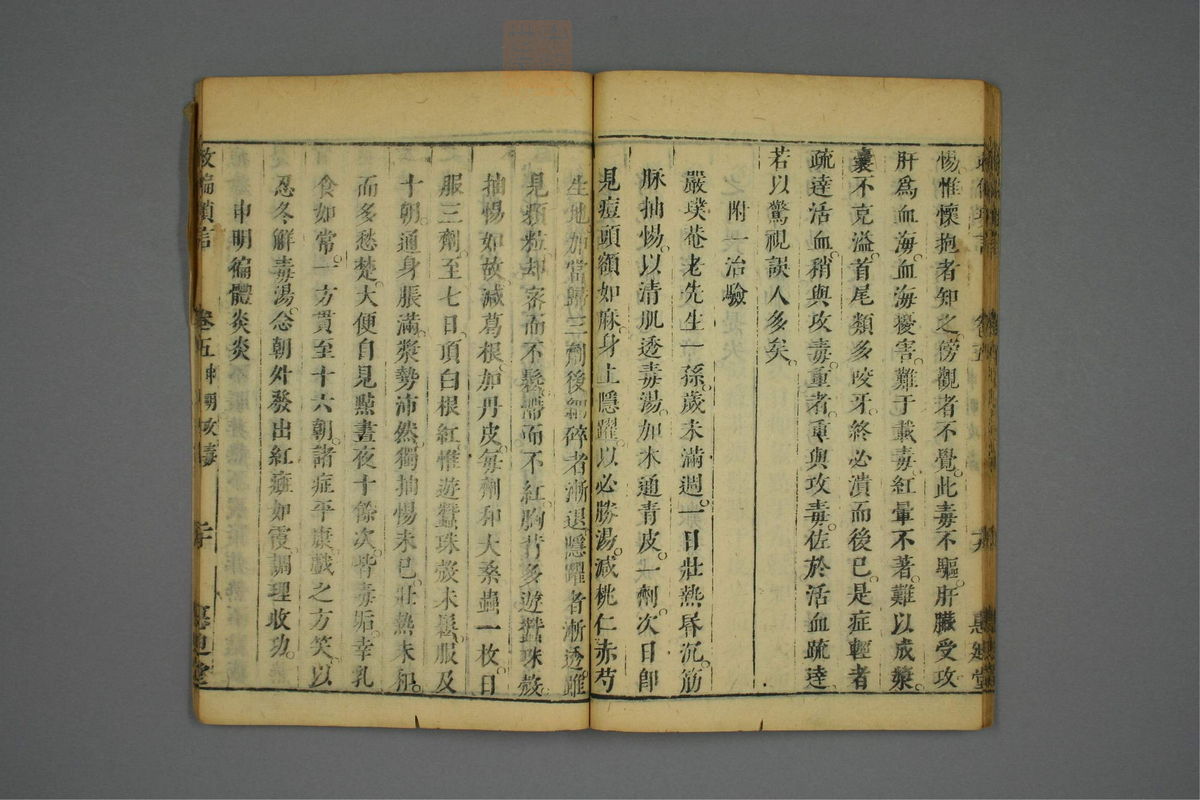 惕惟懷抱者知之傍觀者不覺此毒不驅肝臟受攻
肝爲血海血海擾害難于載毒紅暈不著難以成漿
囊不克溢首尾類多咬牙終必潰而後已是症輕者
疏達活血稍與攻毒重者重與攻毒佐於活血疏達
若以驚視誤人多矣
附一治驗
嚴璞菴老先生一孫歲未滿週一日壯熱昏沉筋
脉抽惕以清肌透毒湯加木通青皮一劑次日卽
見痘頭額如麻身上隱躍以必勝湯減桃仁赤芍
生地加當歸三劑後細碎者漸退隱躍者漸透雖
見顆粒却窄而不鬆滯而不紅胸背多遊蠶珠殼
抽惕如故減葛根加丹皮每劑和大桑蟲一枚日
服三劑至七日頂白根紅惟遊蠶珠殼未鬆服及
十朝通身脹滿漿勢沛然獨抽惕未已壯熱未和
而多愁楚大便自見㸃晝夜十餘次皆毒垢幸乳
食如常一方貫至十六朝諸症平康戲之方笑以
忍冬解毒湯念朝外發出紅斑如霞調理收功
申明徧體炎炎
救偏瑣言 卷五 申明攻毒 二十 惠迪堂